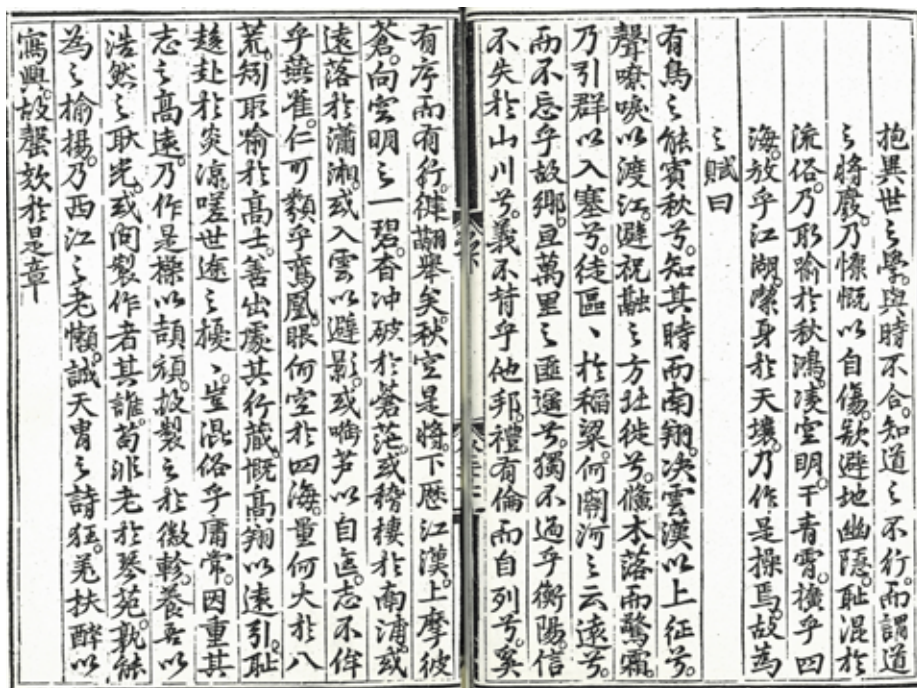 抱異世之學。與時不合。知道之不行。而謂道
之將廢。乃慷慨以自傷。欲避地幽隱。耻混於
流俗。乃取喻於秋鴻。凌空明。干青霄。擴乎四
海。放乎江湖。潔身於天壤。乃作是操焉。故為
之賦曰
有鳥之能賓秋兮。知其時而南翔。决雲漢以上征兮。
聲嘹唳以渡江。避祝融之方壯徙兮。儻木落而驚霜。
乃引群以入塞兮。徒區〻於稻粱。何關河之云遠兮。
而不忘乎故鄉。亘萬里之匪遥兮。獨不過乎衡陽。信
不失於山川兮。義不背乎他邦。禮有倫而自列兮。奚
有序而有行。肆翺舉矣。秋空是將。下歷江漢。上摩彼
蒼。向空明之一碧。杳冲破於蒼茫。或暫棲於南浦。或
遠落於瀟湘。或入雲以避影。或啣芦以自匿。志不侔
乎燕雀。仁可類乎鸞凰。眼何空於四海。量何大於八
荒。矧取喻於高士。善出處其行藏。慨高翔以遠引。耻
趍赴於炎凉。嗟世途之擾〻。豈混俗乎庸常。因重其
志之高遠。乃作是操以頡頏。故製之於徽軫。養吾以
浩然之耿光。或問製作者其誰。苟非老於琴苑。孰能
為之揄揚。乃西江之老懶。誠天胄之詩狂。羌扶醉以
寫興。故罄欬於是章